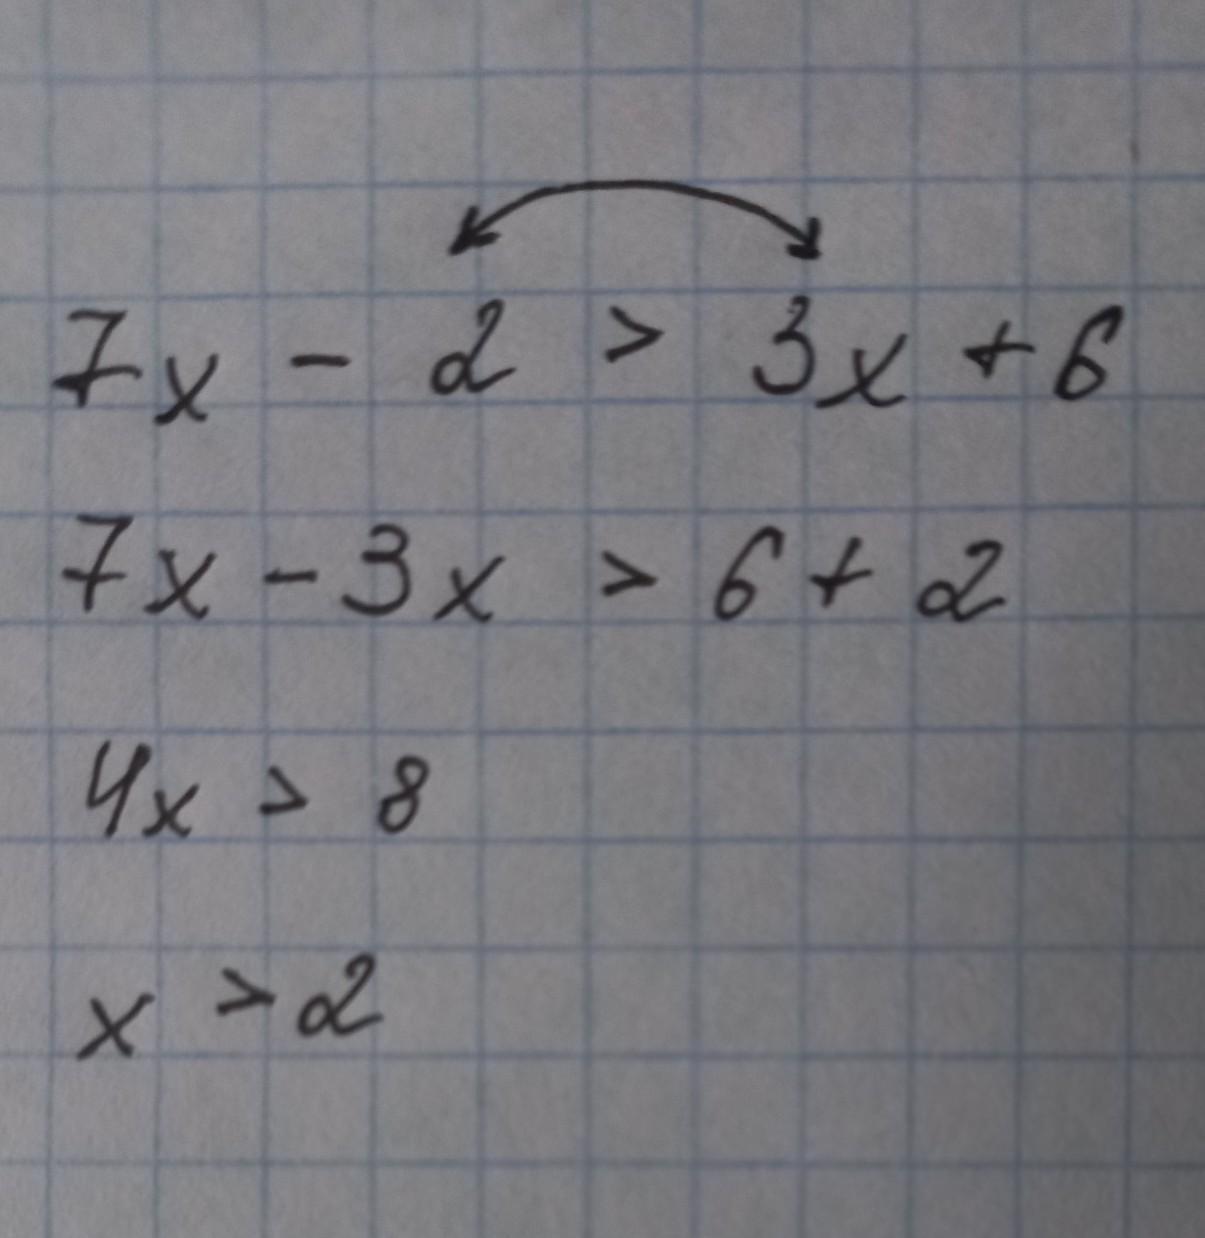 7x - 2 > 3x + 6
7x - 3x > 6 + 2
4x > 8
x > 2